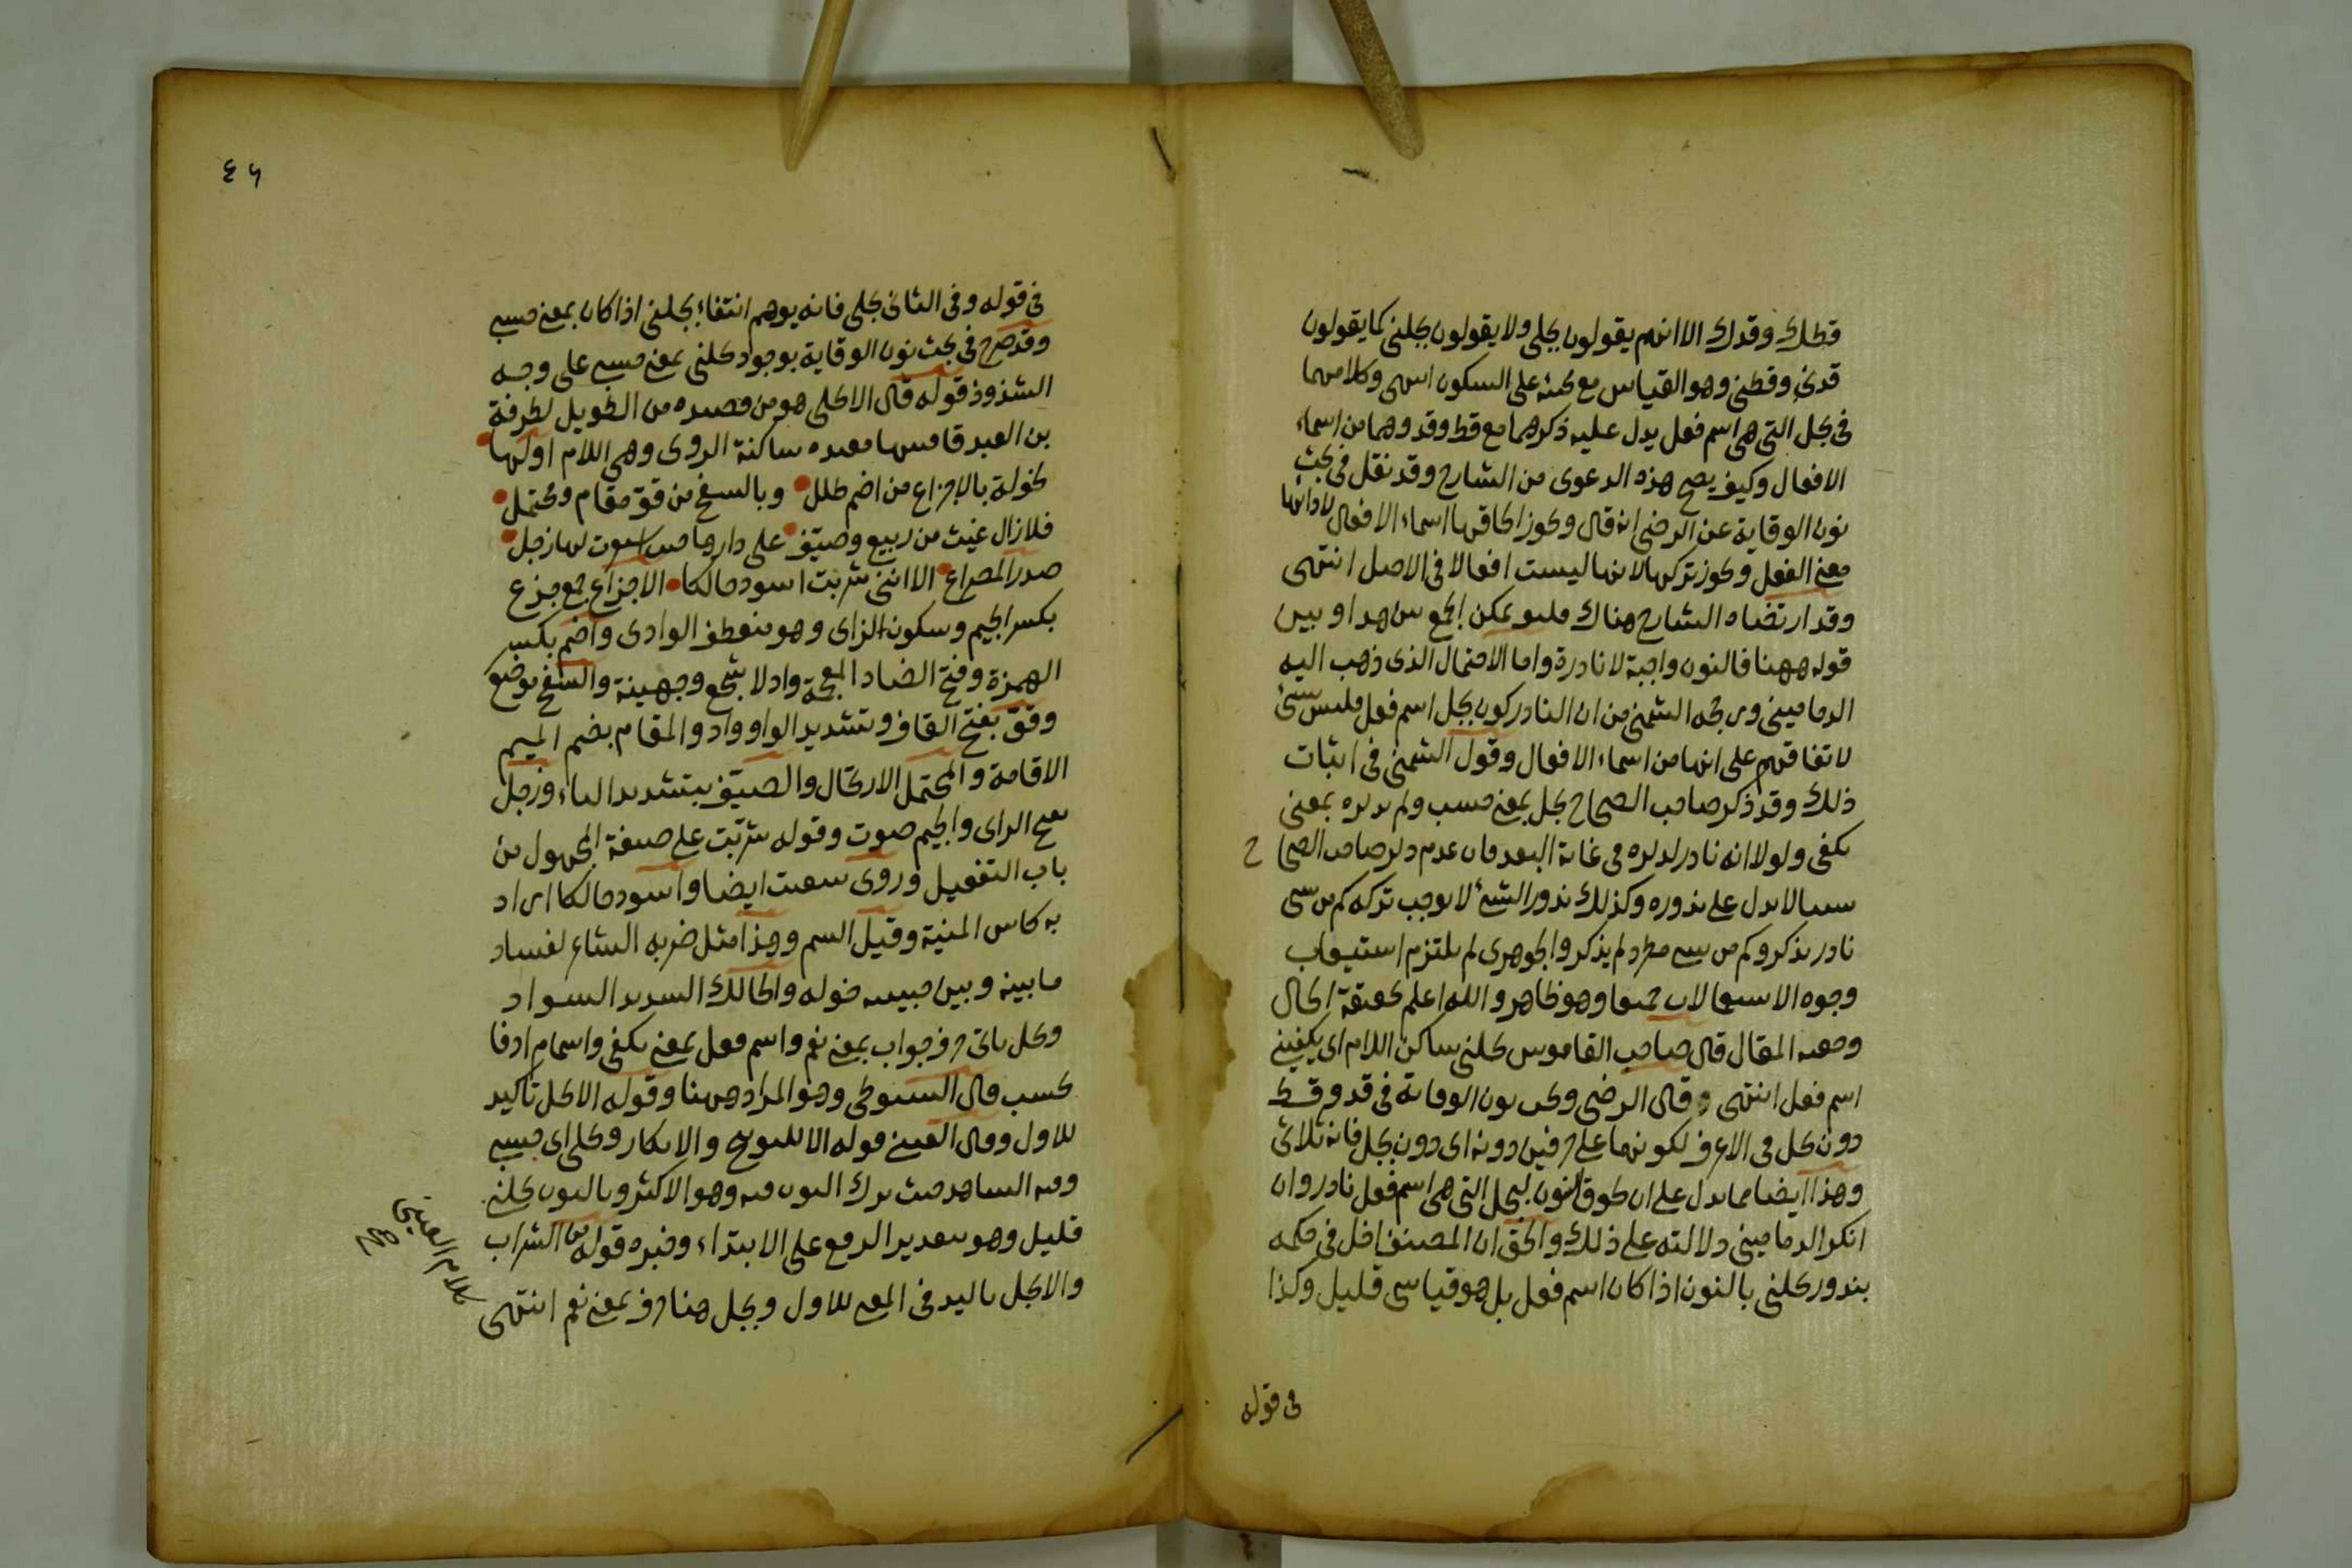 قطك وقدك الا انهم يقولون بجلى ولا يقولون بجلنى كما يقولون
قدنى وقطنى وهو القياس مع كىئه على السكون انتهى وكلامهما
فى بجل التى هى اسم فعل يدل عليه ذكرهما مع قط وقد وهما من اسماء
الافعال وكيف يصح هذه الدعوى من الشارح وقد نقل فى بحث
نون الوقاية عن الرضى انه قال ويجوز الحاقها اسماء الافعال لادائها
معنى الفعل ويجوز تركها لانها ليست افعالا فى الاصل انتهى
وقد ارتضاه الشارح هناك فليف يمكن الجمع بين هذا وبين
قوله ههنا فالنون واجبة لا نادرة واما الاحتمال الذى ذهب اليه
الدمامينى ورجحه الشمنى من ان النادر كون بجل اسم فعل فليس بشئ
لاتفاقهم على انها من اسماء الافعال وقول الشمنى فى اثبات
ذلك وقد ذكر صاحب الصحاح بجل بمعنى حسب ولم يذكره بمعنى
يكفى ولولا انه نادر لذكره فى غاية البعد فان عدم ذكر صاحب الصحاح
شيئا لا يدل على ندوره وكذلك ندور الشئ لا يوجب تركه كم من شئ
نادر يذكر وكم من شئ مطرد لم يذكر والجوهرى لم يلتزم استيعاب
وجوه الاستعمالات جميعا وهو ظاهر والله اعلم بحقيقة الحال
وحقيقة المقال قال صاحب القاموس بجلنى ساكن اللام اى يكفينى
اسم فعل انتهى وقال الرضى ويجب نون الوقاية فى قد وقط
دون بجل فى الاعرف لكونهما على حرفين دونه اى دون بجل فانه ثلاثى
وهذا ايضا مما يدل على ان لحوق النون لبجل التى هى اسم فعل نادر وان
انكر الدمامينى دلالته على ذلك والحق ان المصنف اخل فى حكمه
بندور بجلنى بالنون اذا كان اسم فعل بل هو قياسى قليل وكذا
فى قوله
٤٦
فى قوله وفى الثانى بجلى فانه يوهم انتفاء بجلنى اذا كان بمعنى حسبى
وقد صرح فى بحث نون الوقاية بوجود بجلنى بمعنى حسبى على وجه
الشذوذ قوله قال الا بجلى هو من قصيدة من الطويل لطرفة
بن العبد قافيتها مقيدة ساكنة الروى وهى اللام اولها
لخولة بالاجزاع من اضم طلل وبالسفح من قوّ مقام ومحتمل
فلا زال غيث من ربيع وصيّف على دارها حيث استقرت لها زجل
صدر المصراع الا اننى شربت اسود حالكا الاجزاع جمع جزع
بكسر الجيم وسكون الزاى وهو منعطف الوادى واضم بكسر
الهمزة وفتح الضاد المعجمة واد لاشجع وجهينة والسفح موضع
وقوّ بفتح القاف وتشديد الواو واد والمقام بضم الميم
الاقامة والمحتمل الارتحال والصيّف بتشديد الياء وزجل
بفتح الزاى والجيم صوت وقوله شربت على صيغة المجهول من
باب التفعيل وروى سقيت ايضا واسود حالكا اراد
به كاس المنية وقيل السم وهذا مثل ضربه الشاعر لفساد
ما بينه وبين حبيبته خولة والحالك الشديد السواد
وبجل ياتى حرف جواب بمعنى نعم واسم فعل بمعنى يكفى واسما مرادفا
لحسب قال السيوطى وهو المراد ههنا وقوله الا بجل تاكيد
للاول وقال العينى قوله الا للتوبيخ والانكار وبجلى اى حسبى
وفيه الشاهد حيث ترك النون فيه وهو الاكثر وبالنون بجلنى
قليل وهو بتقدير الرفع على الابتداء وخبره قوله من الشراب
والا بجل تاكيد فى المعنى للاول وبجل هنا حرف بمعنى نعم انتهى
كلام العينى